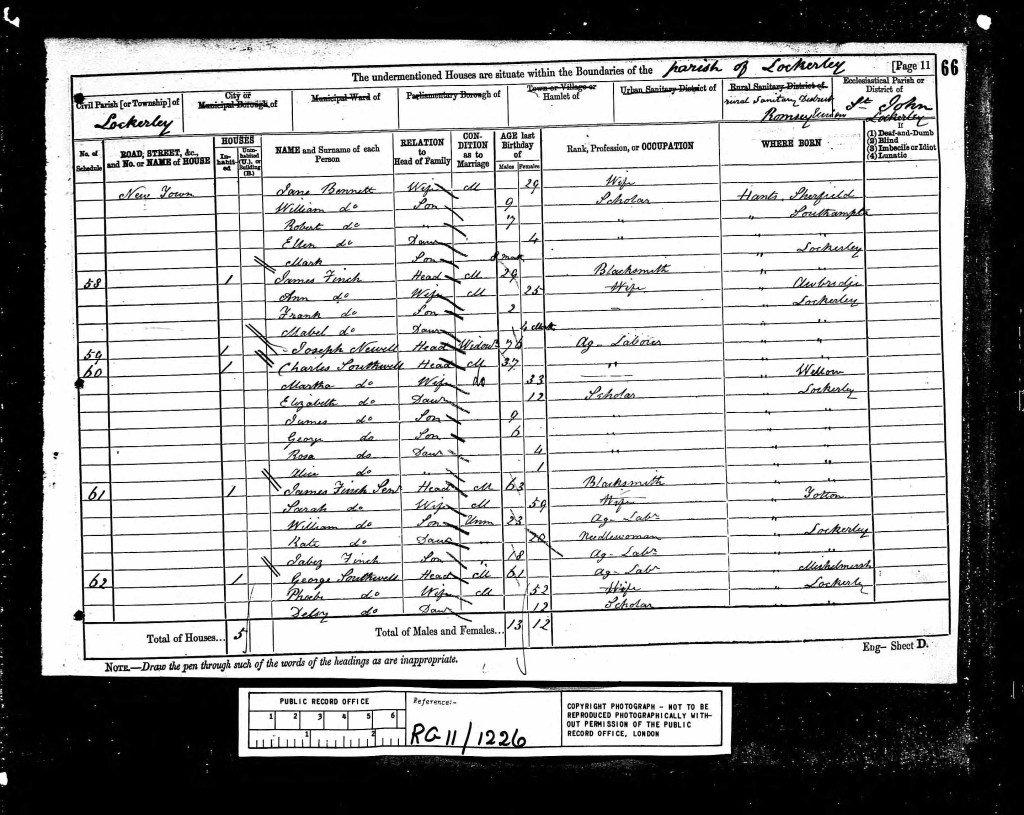 The undermentioned Houses are situate within the Boundaries of the parish of Lockerley [Page 11 66
Civil Parish [or Township] of City or Municipal Borough of Municipal Ward of Parliamentary Borough of Town or Village or Hamlet of Urban Sanitary District of Rural Sanitary District of Ecclesiastical Parish or District of
Lockerley rural Sanitary District Romsey St. John Lockerley
No. of Schedule ROAD, STREET, &c., and No. or NAME of HOUSE HOUSES Inhabited Uninhabited (U.), or Building (B.) NAME and Surname of each Person RELATION to Head of Family CONDITION as to Marriage AGE last Birthday of Males Females Rank, Profession, or OCCUPATION WHERE BORN If (1) Deaf-and-Dumb (2) Blind (3) Imbecile or Idiot (4) Lunatic
New Town Jane Bennett Wife M 29 Wife Hants Sherfield
William do Son 9 Scholar " Southampton
Robert do " 7 " "
Ellen do Daur 4 " " Lockerley
Mark Son 8 " "
58 1 James Finch Head M 29 Blacksmith " "
Ann do Wife M 25 Wife " Awbridge
Frank do Son 2 — " Lockerley
Mabel do Daur 4 " "
59 1 Joseph Newell Head Widow 76 Ag- Labourer " "
60 1 Charles Southwell Head M 37 " " Wellow
Martha do Wife do 33 — " Lockerley
Elizabeth do Daur 12 Scholar " "
James do Son 9 " " "
George do Son 6 " " "
Rosa do Daur 4 " " "
Alice do " 1 " "
61 1 James Finch Senr Head M 63 Blacksmith " Totton
Sarah do Wife M 59 Wife "
William do Son Unm 23 Ag- Labr " Lockerley
Kate do Daur " 20 Needlewoman " "
Jabez Finch Son " 18 Ag- Labr " "
62 1 George Southwell Head M 61 Ag- Labr " Michelmersh
Phoebe do Wife M 52 Wife " Lockerley
do Daur 12 Scholar " "
Total of Houses... 5 Total of Males and Females... 13 12
NOTE.—Draw the pen through such of the words of the headings as are inappropriate.
Eng- Sheet D.
PUBLIC RECORD OFFICE
1 2 3 4 5 6
1 2
Reference:-
RG 11/1226
COPYRIGHT PHOTOGRAPH - NOT TO BE
REPRODUCED PHOTOGRAPHICALLY WITH-
OUT PERMISSION OF THE PUBLIC
RECORD OFFICE, LONDON